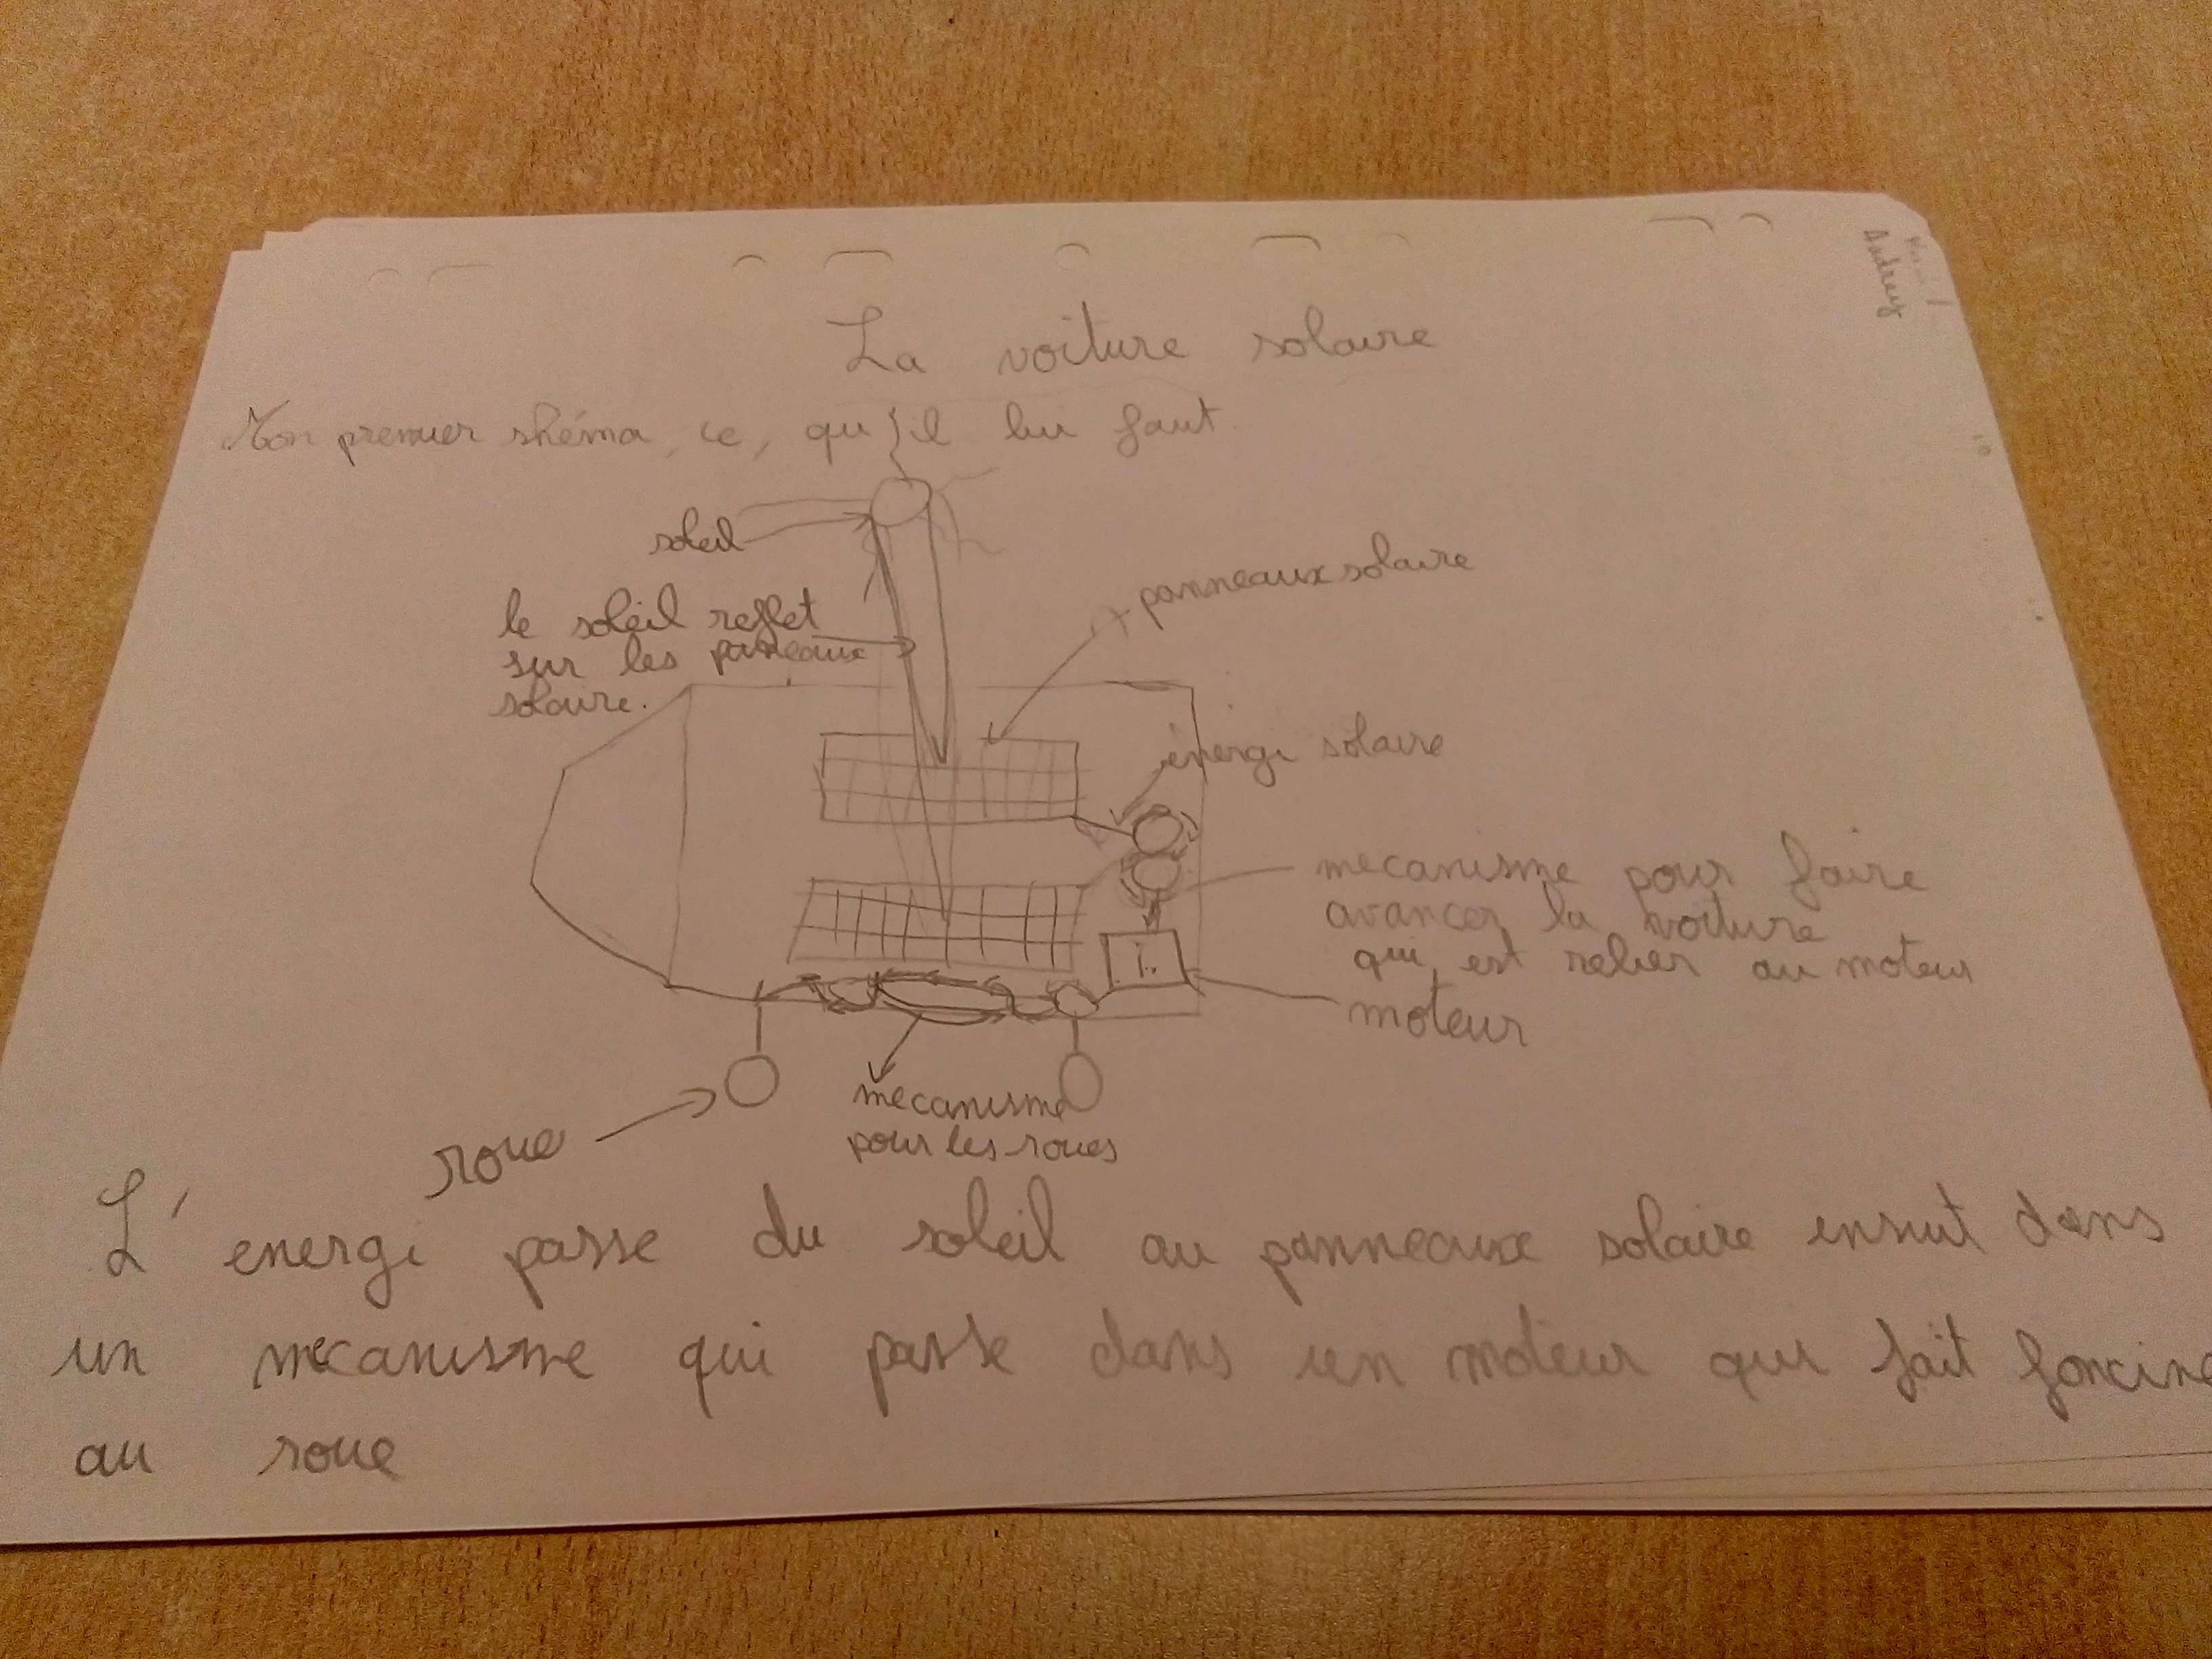 Audrey
La voiture solaire
Mon premier shéma, ce, qu'il lui faut.
soleil
le soleil reflet
sur les paneaux
solaire.
panneaux solaire
énergi solaire
mecanisme pour faire
avancer la voiture
qui est relier au moteur
moteur
mecanisme
pour les roues
roue
L'energi passe du soleil au panneaux solaire ensuit dans
un mecanisme qui passe dans un moteur qui fait foncine
au roue